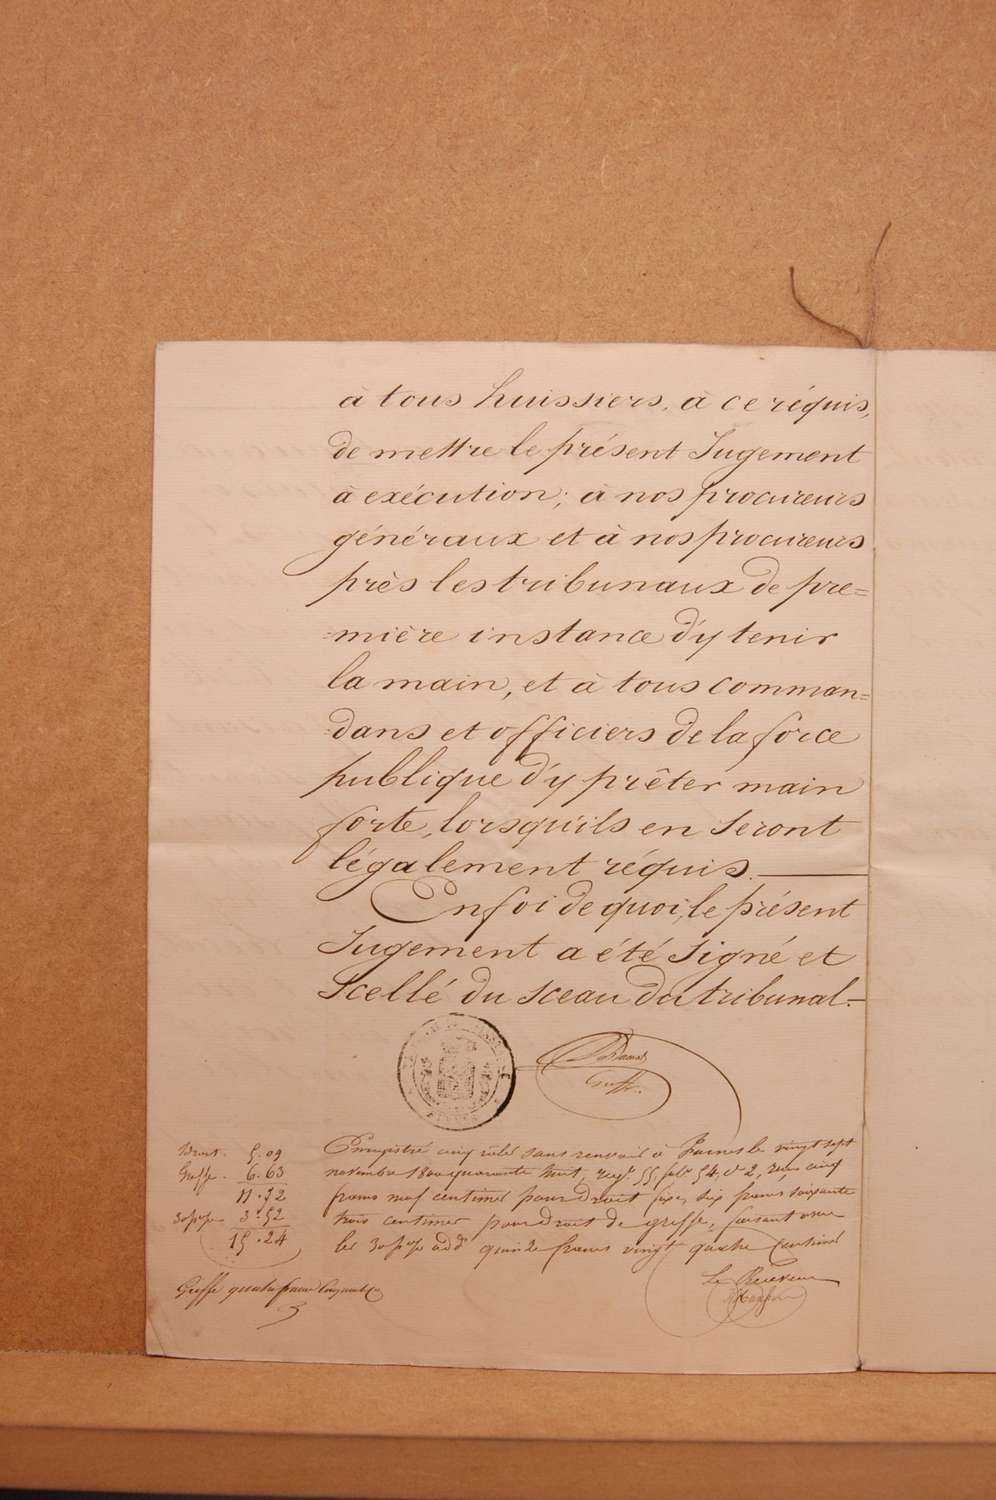 à tous huissiers, à ce réquis,
de mettre le présent Jugement
à exécution; à nos procureurs
généraux et à nos procureurs
près les tribunaux de pre=
=mière instance d'y tenir
la main, et à tous comman=
=dans et officiers de la force
publique d'y prêter main
forte, lorsqu'ils en seront
légalement réquis.
En foi de quoi, le présent
Jugement a été Signé et
Scellé du sceau du tribunal.
Greff.
Droit. 5.09
Greffe. 6.63
11.72
30 p% 3.52
15.24
Enregistré cinq rôles sans renvoi à Furnes le vingt sept
novembre 1800 quarante huit, reg. 55 fol. 54, c. 2, reçu cinq
francs neuf centimes pour droit fixe, six francs soixante
trois centimes pour droit de greffe, faisant avec
les 30 p% add. quinze francs vingt quatre centimes
Le Receveur
Greffe quatre francs cinquante